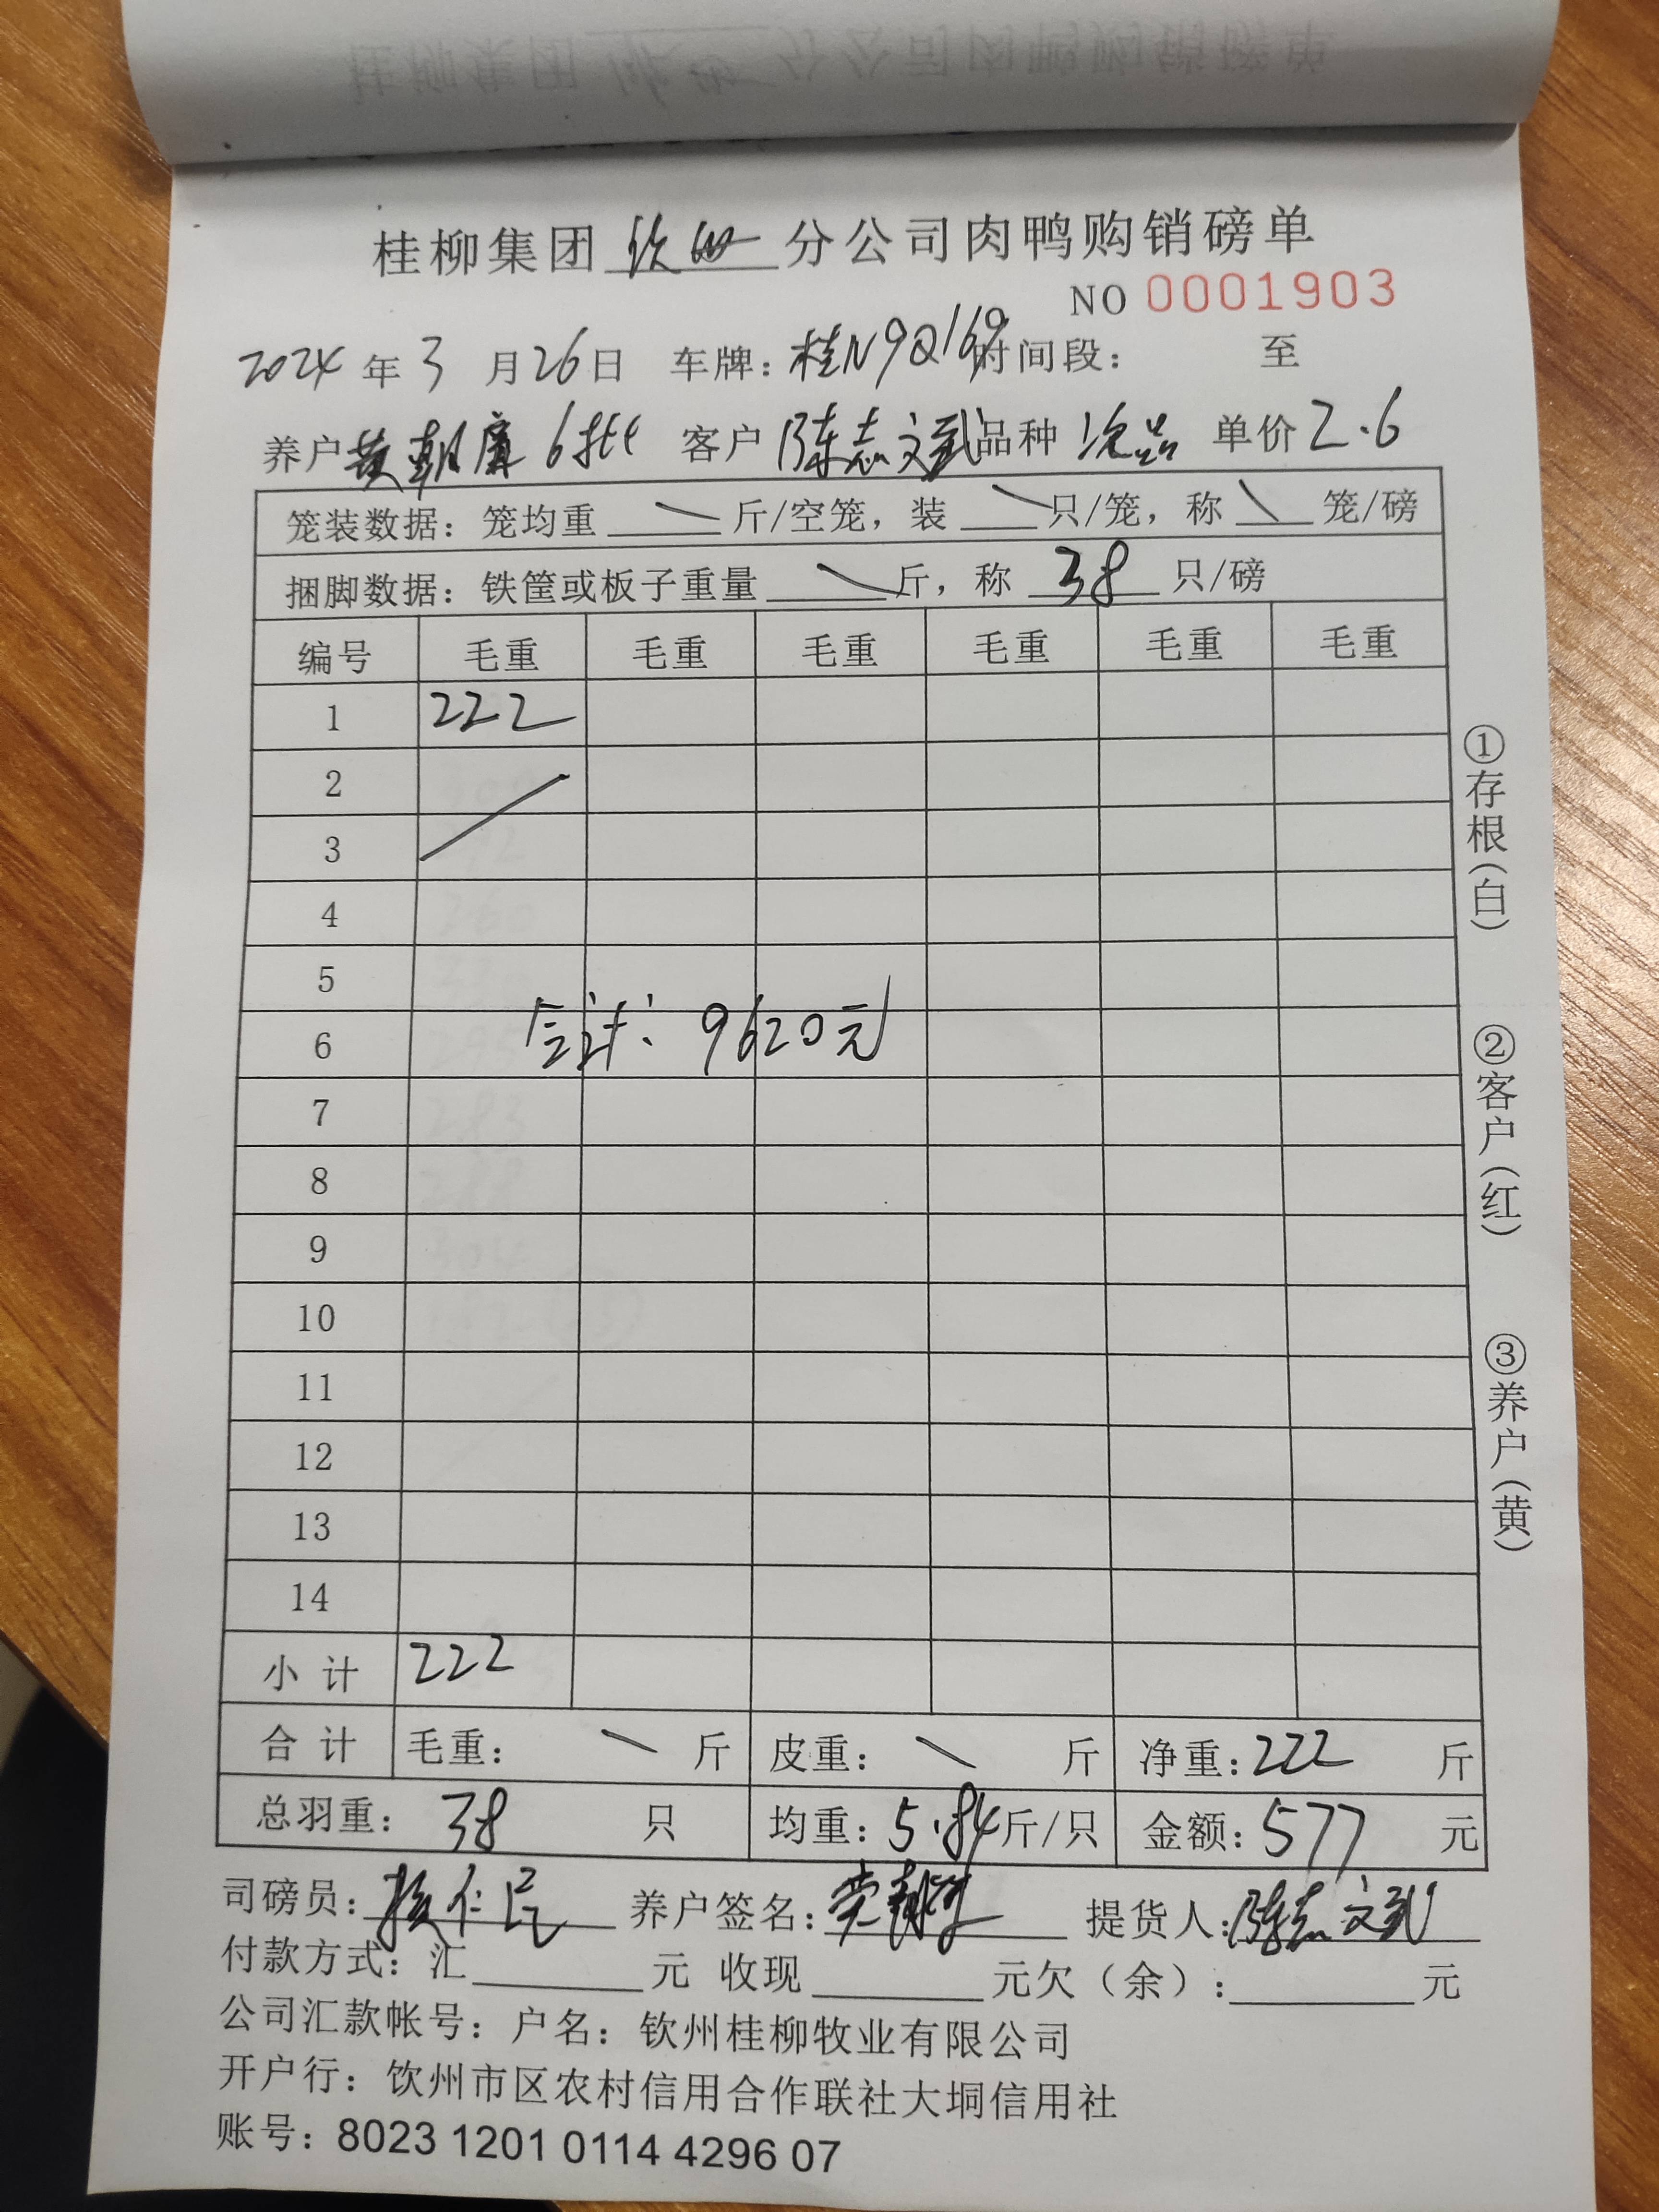 桂柳集团 钦州 分公司肉鸭购销磅单
NO 0001903
2024 年 3 月 26 日 车牌：桂N9Q169 时间段： 至
养户 黄朝廉 6批 客户 陈志文武 品种 次品 单价 2.6
笼装数据：笼均重 \ 斤/空笼，装 \ 只/笼，称 \ 笼/磅
捆脚数据：铁筐或板子重量 \ 斤，称 38 只/磅
编号 毛重 毛重 毛重 毛重 毛重 毛重
1 222
2
3
4
5
6 合计：9620元
7
8
9
10
11
12
13
14
小 计 222
合 计 毛重： \ 斤 皮重： \ 斤 净重：222 斤
总羽重： 38 只 均重：5.84 斤/只 金额：577 元
司磅员： 仁民 养户签名： 提货人：陈志文武
付款方式：汇 元 收现 元欠（余）： 元
公司汇款帐号：户名：钦州桂柳牧业有限公司
开户行：饮州市区农村信用合作联社大垌信用社
账号：8023 1201 0114 4296 07
①存根（白）
②客户（红）
③养户（黄）